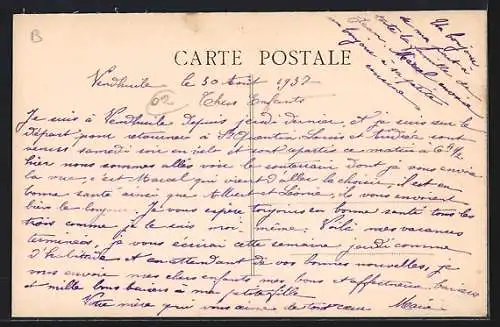 B
CARTE POSTALE
Un bonjour
de ma part à
toute la famille de
Marcel
un bonjour à sa petite
Vendhuile le 30 Août 1937
62
Chers Enfants
Je suis à Vendhuile depuis jeudi dernier, et je suis sur le
départ pour retourner à St Quentin Louis et Andrée sont
venus samedi soir en vélo et sont repartis ce matin à 6 h ½
hier nous sommes allés voir le souterrain dont je vous envoie
la vue, c'est Marcel qui vient d'aller la choisir, il est en
bonne santé ainsi que Albert et Léonie, ils vous envoient
bien le bonjour. Je vous espère toujours en bonne santé tous les
trois comme je le suis moi-même. Voilà mes vacances
terminées, je vous écrirai cette semaine, jeudi comme
d'habitude et en attendant de vos bonnes nouvelles, je
vous envoie mes chers enfants mes bons et affectueux baisers
et mille bons baisers à ma petite fille
Votre mère qui vous aime de tout cœur Maria